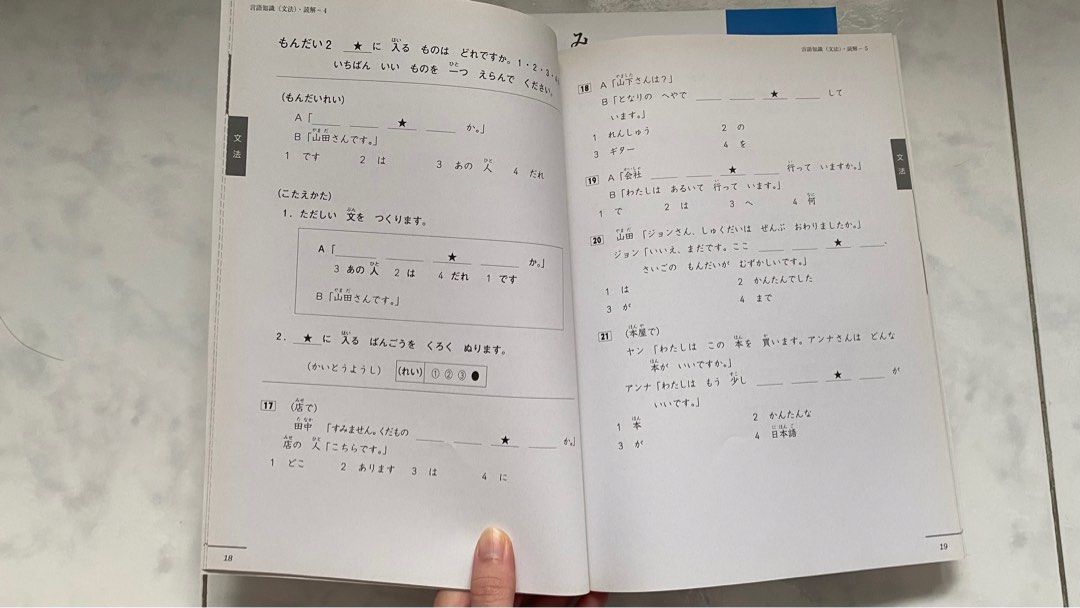 言語知識(文法)・読解-4
もんだい2 ★に 入る ものは どれですか。1・2・3・4
いちばん いい ものを 一つ えらんで ください。
(もんだいれい)
A「 ★ か。」
B「山田さんです。」
1 です 2 は 3 あの 人 4 だれ
(こたえかた)
1. ただしい 文を つくります。
A「 ★ か。」
3 あの 人 2 は 4 だれ 1 です
B「山田さんです。」
2. ★ に 入る ばんごうを くろく ぬります。
(かいとうようし) (れい) ① ② ③ ●
17 (店で)
田中「すみません。くだもの ★ か。」
店の 人「こちらです。」
1 どこ 2 あります 3 は 4 に
文法
18
み
言語知識(文法)・読解-5
18 A「山下さんは?」
B「となりの へやで ★ して
います。」
1 れんしゅう 2 の
3 ギター 4 を
19 A「会社 ★ 行って いますか。」
B「わたしは あるいて 行って います。」
1 で 2 は 3 へ 4 何
20 山田「ジョンさん、しゅくだいは ぜんぶ おわりましたか。」
ジョン「いいえ、まだです。ここ ★ .
さいごの もんだいが むずかしいです。」
1 は 2 かんたんでした
3 が 4 まで
21 (本屋で)
ヤン「わたしは この 本を 買います。アンナさんは どんな
本が いいですか。」
アンナ「わたしは もう 少し ★ が
いいです。」
1 本 2 かんたんな
3 が 4 日本語
文法
19